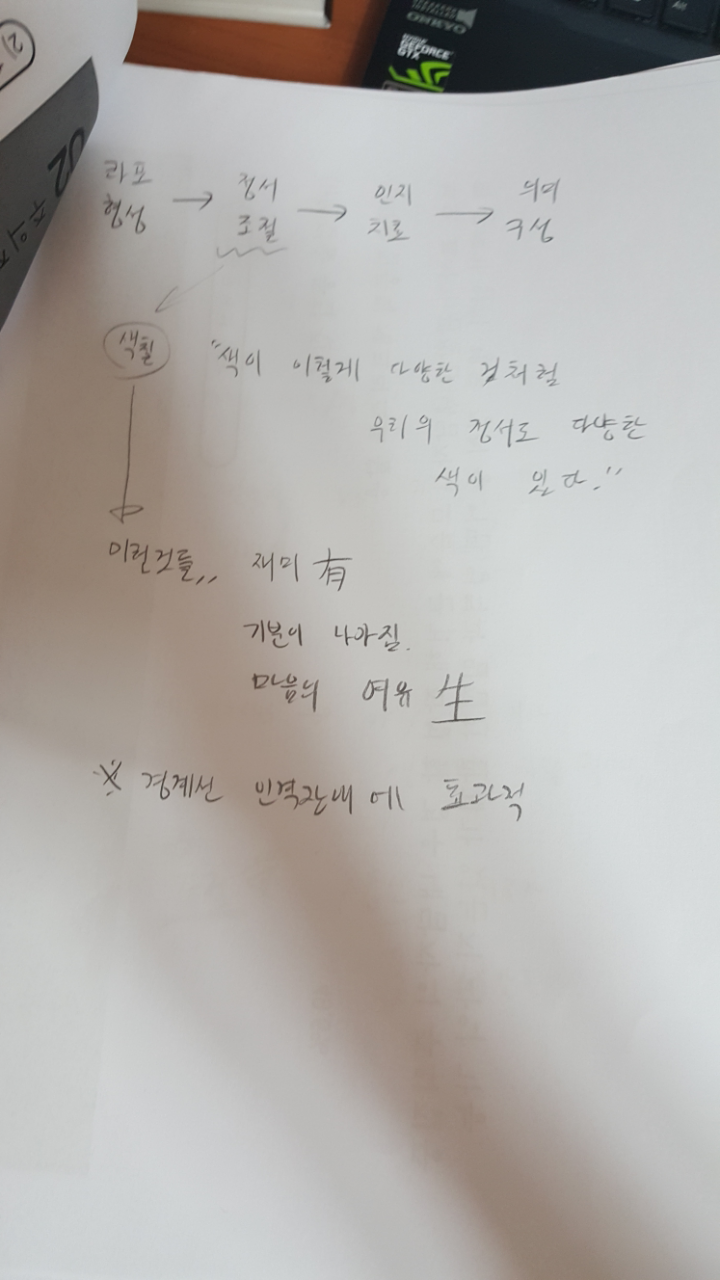 라포 정서 인지 의미
형성 → 조절 → 치료 → 구성
색칠 "색이 이렇게 다양한 것처럼
우리의 정서도 다양한
색이 있다."
이런것들,, 재미 有
기분이 나아짐.
마음의 여유 生
※ 경계선 인격장애에 효과적
ONKYO
GEFORCE
GTX
02